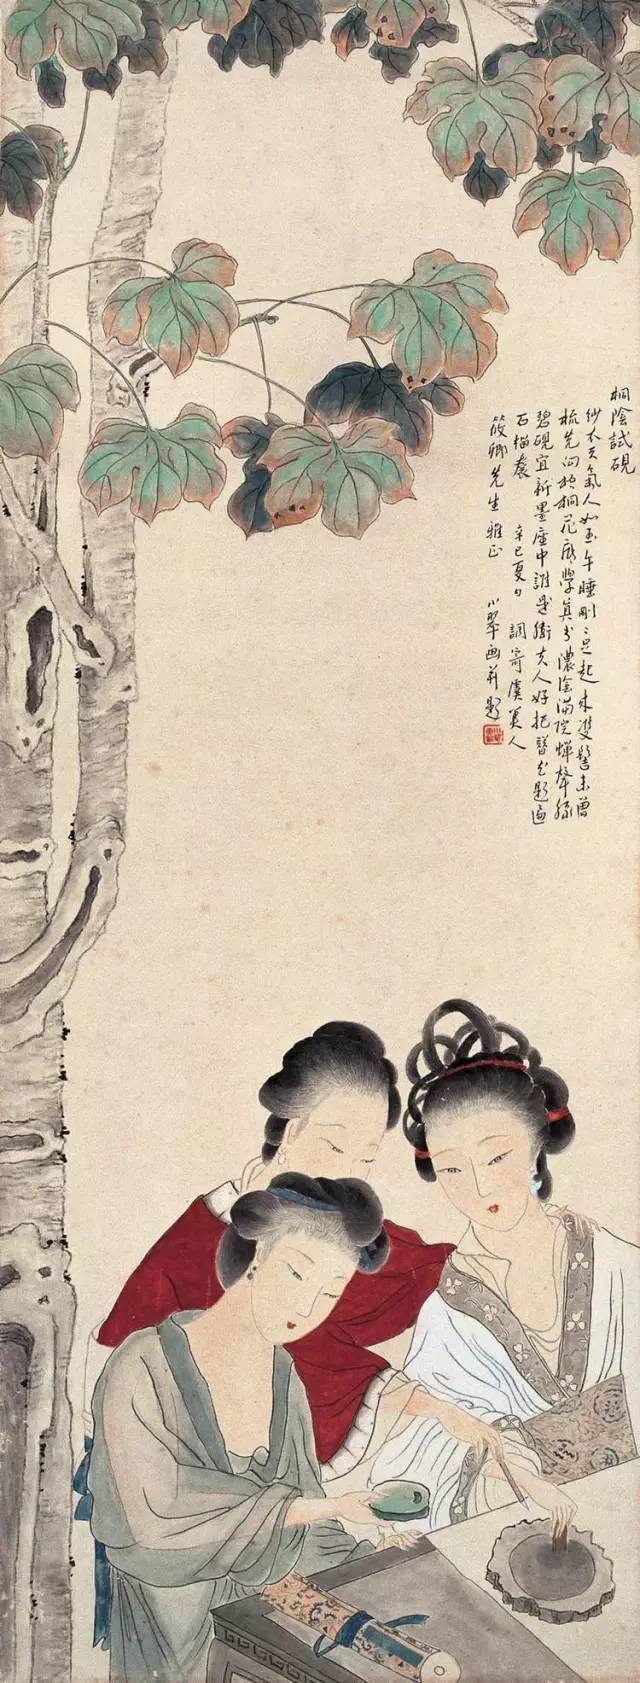 桐陰試硯
紗衣天氣人如玉午睡剛〻足起来雙髻未曾
梳先向梧桐花底學真書濃陰滿院蟬聲綠
碧硯宜新墨座中誰是衛夫人好把簪花題遍
石榴裙 辛巳夏日 調寄虞美人
筱卿先生雅正 小翠画并題